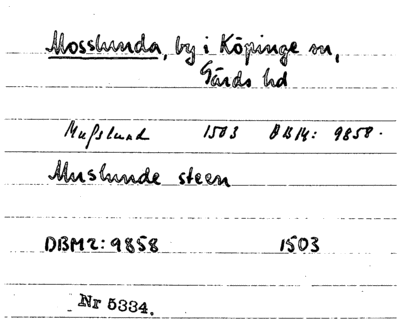 Mosslunda, by i Köpinge sn,
Gärds hd
Mußlund 1503 DBM: 9858.
Muslunde steen
DBM2: 9858 1503
Nr 5334.